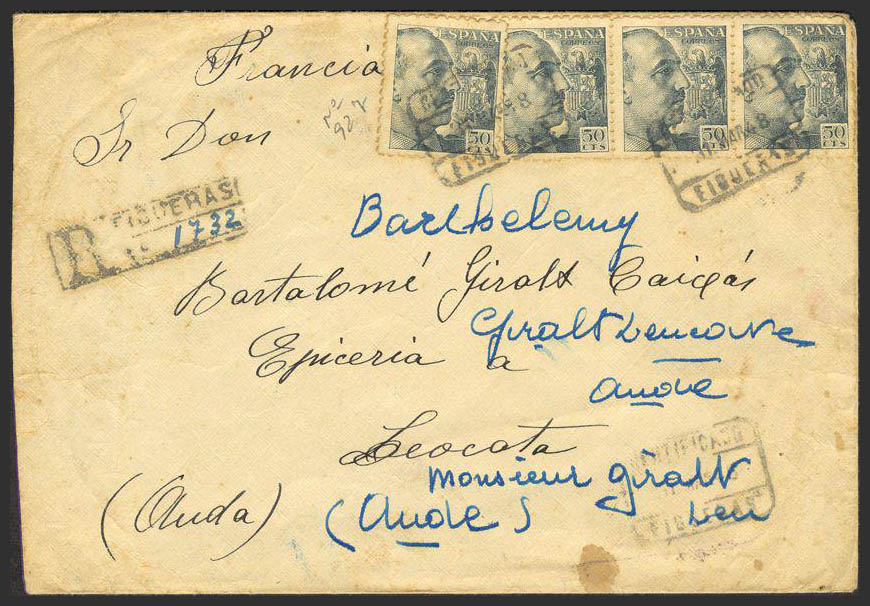 Francia
Sr Don
ESPAÑA ESPAÑA ESPAÑA ESPAÑA
CORREOS CORREOS CORREOS CORREOS
50 CTS 50 CTS 50 CTS 50 CTS
FIGUERAS FIGUERAS
R FIGUERAS
1732
Barthelemy
Bartalomé Giralt
Giralt
Epiceria a
Aude
Leocata
CERTIFICADO
Monsieur Giralt
(Auda) (Aude) Leu
FIGUERAS